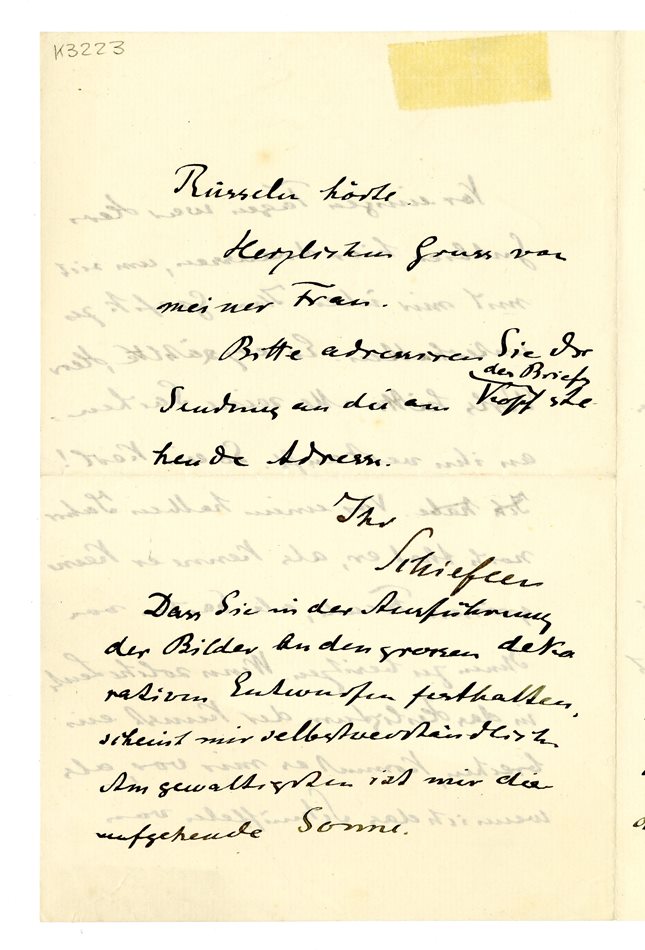 K3223
Rüsseln hörte.
Herzlichen Gruss von
meiner Frau.
Bitte adressiren Sie die
des Briefs
Sendung an die am Kopf ste-
hende Adresse.
Ihr
Schiefler
Dass Sie in der Ausführung
der Bilder an den grossen deko
rativen Entwürfen festhalten,
scheint mir selbstverständlich.
Am gewaltigsten ist mir die
aufgehende Sonne.